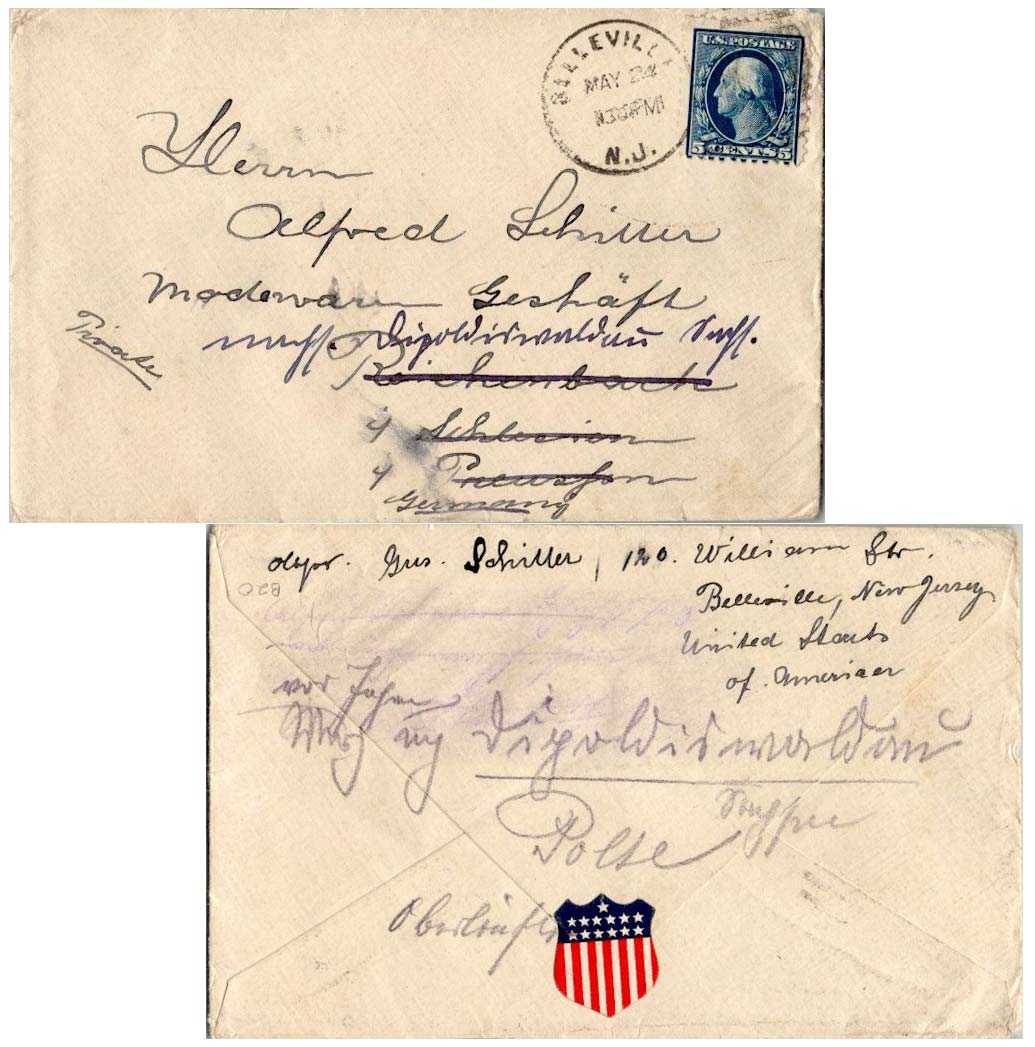 BELLEVILLE
MAY 24
130 PM
N.J.
U.S. POSTAGE
5 CENTS 5
Herrn
Alfred Schiller
Modewaren Geschäft
Private
nach Dipoldiswaldau Sachs.
Reichenbach
i/ Schlesien
i/ Preussen
Germany
Gus. Schiller, 120. William Str.
Belleville, New Jersey
United Staats
of America
B20
vor Jahren
Dipoldiswaldau
Sachsen
Polte